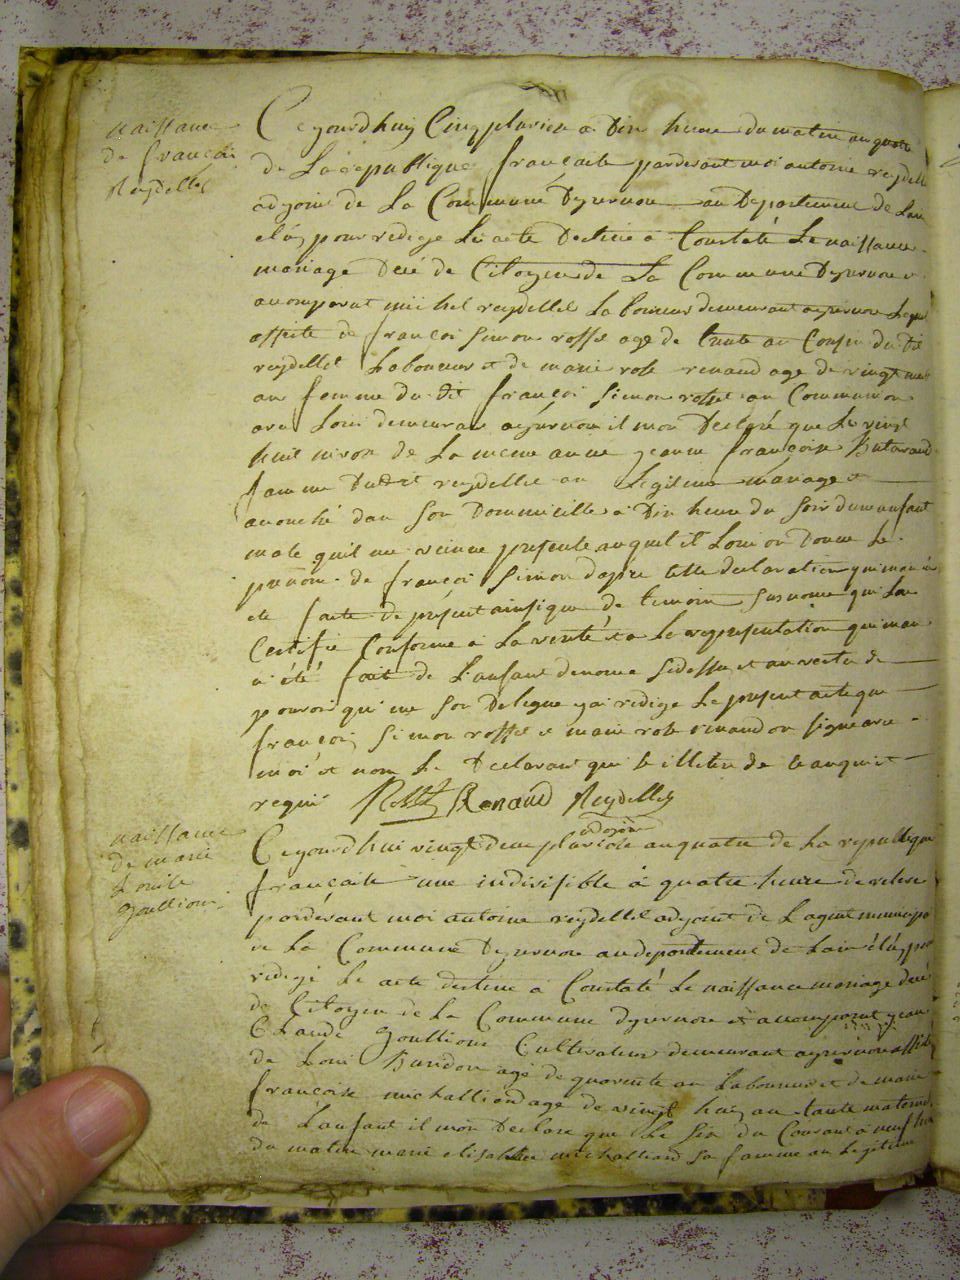 naissance
de françoi
Reydellet
Cejourdhuij Cinq pluviose a Dix heure du matin an quatre
de La république française pardevant moi antoine reydellet
adjoint de La Commune Dizernore au Département de Lain
elu pour redigé Les acte Destiné a Constaté Le naissance
mariage Décé de Citoyen de La Commune Dyzernore
a comparut michel reydellet Laboureur demeurant ayzernore Lequel
assisté de françoi Simon rosset agé de trente an Cousin du dit
reydellet Laboureur et de marie rose renaud age de vingt neuf
an femme du dit françoi Simon rosset au Commune
avec Loui demeurant ayzernore il mon Declaré que Le vingt
huit nivos de La meme anne jeanne françoise Butavand
famme Dudit reydellet an Legitime mariage et
acouché dan Son Dommicille a Dix heure du Soir dun anfant
male quil me presente auquel il Loui on Donne Le
prenom de françoi Simon dapre cette declaration qui mon
ete faite de présent ainsi que de temoin Susnomé qui Lon
Certifié Conforme a La verité et a Le representation qui man
a été fait de Lanfant denomé Sidessu et anvertu de
pouvoir qui me Son Delegue jai rédigé Le present acte que
françoi Simon rosset et marie rose renaud on signe avec
moi et non Le Declarant qui be illetré de ce anquit
requi Rosset Renaud Reydellet
adjoint
naissance
de marie
Louise
Goullion
Cejourdhui vingt deux pluviose an quatre de La republique
française une indivisible a quatre heure de relevé
pardevant moi antoine reydellet adjoint de Lagent municipa
de La Commune Dyzernore au departement de Lain élu pour
redigé Le acte destiné a Constaté Le naissance mariage décé
de Citoyen de La Commune Dyzernore et a comparut jean
Claude Goullion Cultivateur demeurant ayzernore assisté
de Loui Burdon age de quarente an Laboureur et de marie
françoise michalliond age de vingt huit an tante maternel
de Lanfant il mon Declare que Le Six du Courant a neuf heure
du matin marie elisabethe michalliard Sa famme an Legitime